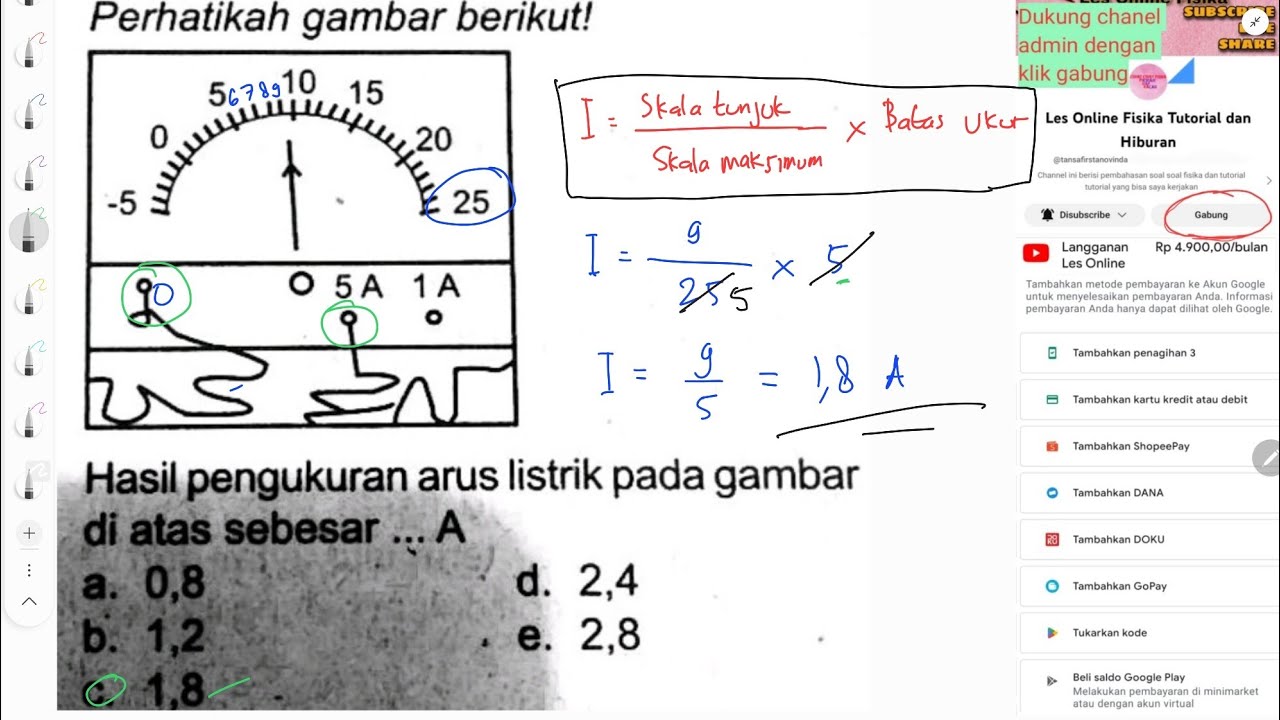 Perhatikah gambar berikut!
-5 0 5 6 7 8 9 10 15 20 25
0 5 A 1 A
I = Skala tunjuk / Skala maksimum × Batas ukur
I = 9 / 25 5 × 5
I = 9 / 5 = 1,8 A
Hasil pengukuran arus listrik pada gambar
di atas sebesar ... A
a. 0,8
b. 1,2
c. 1,8
d. 2,4
e. 2,8
Les Online Fisika
SUBSCRIBE
LIKE
SHARE
Dukung chanel
admin dengan
klik gabung
Les Online Fisika Tutorial dan
Hiburan
@tansafirstanovinda
Channel ini berisi pembahasan soal soal fisika dan tutorial
tutorial yang bisa saya kerjakan
Disubscribe
Gabung
Langganan Rp 4.900,00/bulan
Les Online
Tambahkan metode pembayaran ke Akun Google
untuk menyelesaikan pembayaran Anda. Informasi
pembayaran Anda hanya dapat dilihat oleh Google.
Tambahkan penagihan 3
Tambahkan kartu kredit atau debit
Tambahkan ShopeePay
Tambahkan DANA
Tambahkan DOKU
Tambahkan GoPay
Tukarkan kode
Beli saldo Google Play
Melakukan pembayaran di minimarket
atau dengan akun virtual